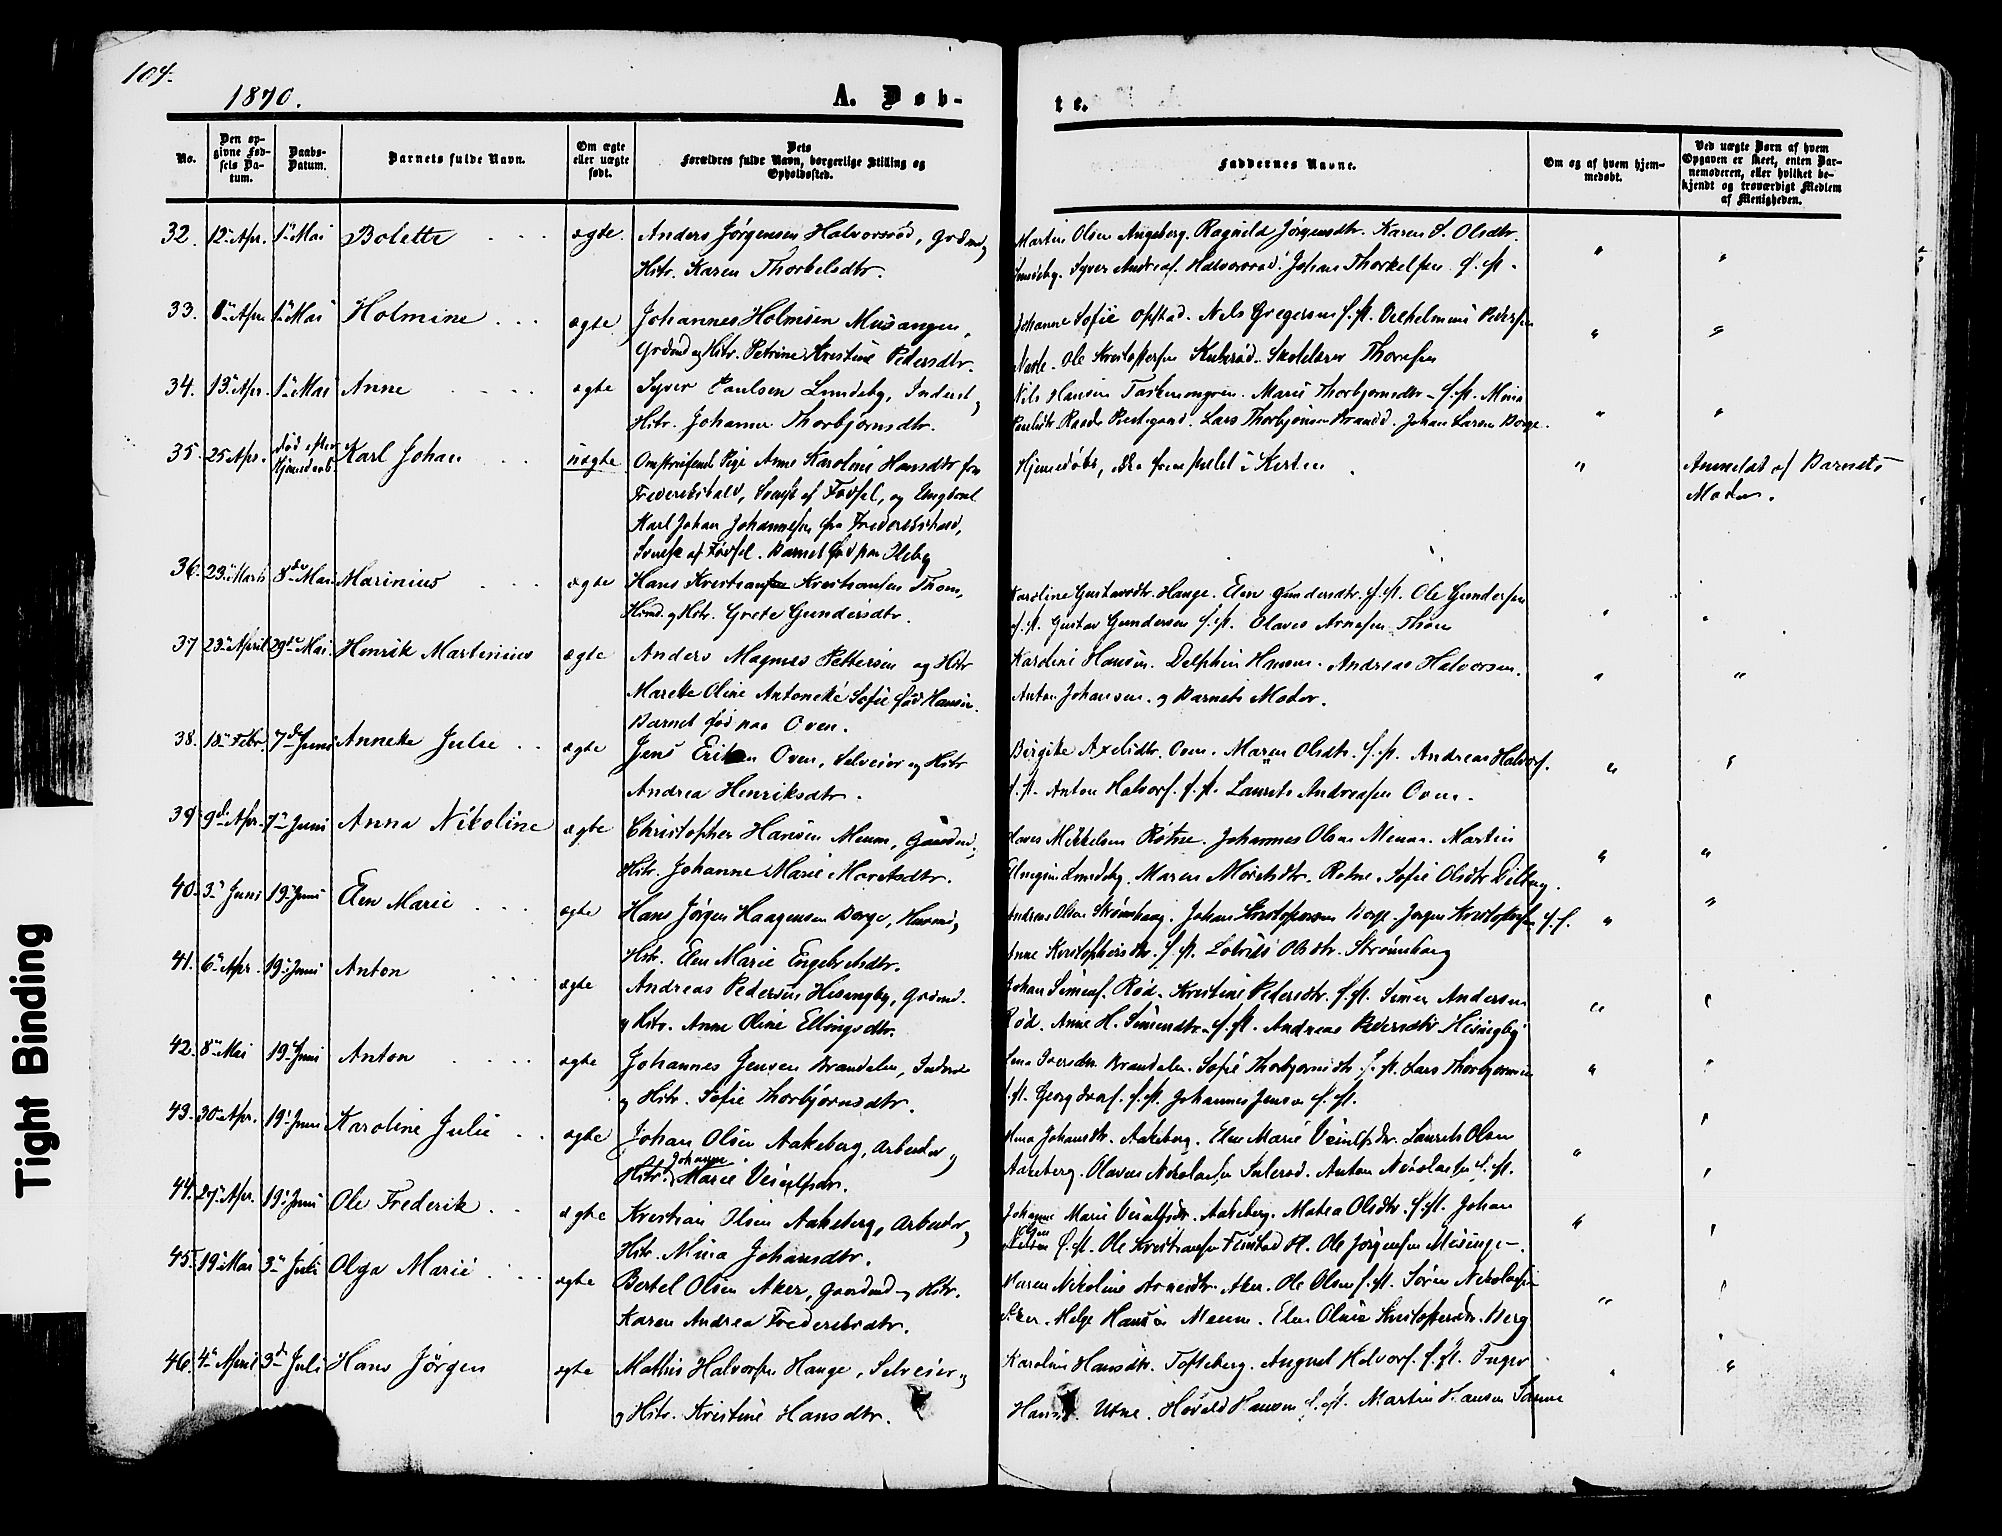 104.
1870.
A. Døb-
te.
No.
Den op-
givne Fød-
sels Da-
tum.
Daabs-
Datum.
Barnets fulde Navn.
Om ægte
eller uægte
født.
Dets
Forældres fulde Navn, borgerlige Stilling og
Opholdssted.
Faddernes Navne.
Om og af hvem hjem-
medøbt.
Ved uægte Børn af hvem
Opgaven er skeet, enten Bar-
nemoderen, eller hvilket be-
kjendt og troværdigt Medlem
af Menigheden.
32. 12. Apr. 1. Mai Bolette ægte. Anders Jørgensen Halvorsrød, Grdmd. og
Hstr. Karen Thorkelsdtr.
Martin Olsen Angeberg. Ragnild Jørgensdtr. Karen S. Olsdtr.
Syver Andreas. Halvorsrød. Johan Thorkelsen s. st.
33. 8. Apr. 1. Mai Holmine ægte Johannes Holmsen Musangen,
Grdmd og Hstr. Petrine Kristine Pedersdtr.
Johanne Sofie Opstad. Nils Gregersen s. st. Vilhelmine Pedersen
Ole Kristoffersen. Skolelærer Thoresen
34. 13. Apr. 1. Mai Anne ægte Syver Paulsen Lundeby, Inderst og
Hstr. Johanne Thorbjørnsdtr.
Nils Hansen. Maria Thorbjørnsdtr. s. st. Mina
Paulsdtr. Raade Prestegaard. Lars Thorbjørnsen. Johan Larsen Borge.
35. 25 Apr. død efter
Hjemedaab Karl Johan uægte Omstreifende Pige Anne Karoline Hansdtr fra
Frederikshald, Svensk af Fødsel, og Ungkarl
Karl Johan Johannesen fra Frederikshald,
Svensk af Fødsel. Barnet født paa Oleby
Hjemedøbt, ikke fremstillet i Kirken
Anmeldt af Barnets
Moder.
36. 23. Marts 8de Mai Marinius ægte Hans Kristiansen Thorn,
Hmd. og Hstr. Grete Gundersdtr.
Karoline Gustavsdtr. Hauge. Elen Gundersdtr. s. st. Ole Gundersen
s. st. Gustav Gundersen s. st. Olaves Arnesen Thorn
37 23. April 29de Mai. Henrik Martinius ægte Anders Magnus Pettersen og Hstr
Mareke Oline Antoneke Sofie født Hansen.
Barnet født paa Oven.
Karoline Hansen. Delphin Hansen. Andreas Halvorsen.
Anton Johansen. og Barnets Moder.
38. 18. Febr. 7de Juni Anneke Julie ægte Jens Eriksen Oven, Selveier og Hstr
Andrea Henriksdtr.
Birgitte Axelsdtr. Oven. Maren Olsdtr. s. st. Andreas Halvors.
s. st. Anton Halvors. s. st. Laurits Andreasen Oven.
39. 9de Apr. 7. Juni Anna Nikoline ægte Christopher Hansen Menne, Gaardmd.
Hstr. Johanne Marie Moritsdtr.
Olaves Mikkelsen Røtne. Johannes Olsen Menne. Martin
Lundeby. Maren Moritsdtr. Røtne. Sofie Olsdtr
40. 3. Juni 19. Juni Elen Marie ægte Hans Jørgen Haagensen Borge, Husmd. og
Hstr. Elen Marie Engebretsdtr.
Andreas Olsen Strømhaug. Johan Kristophersen Borge. Jørgen Kristoffersen s. s.
Anne Kristophersdtr. s. st. Lovise Olsdtr. Strømhaug
41. 6. Apr. 19. Juni Anton ægte Andreas Pedersen Hisingby, Grdmd.
og Hstr. Anne Oline Ellingsdtr.
Johan Simens. Rød. Kristine Pedersdtr. s. st. Simen Andersen
Rød. Anne H. Simensdtr. s. st. Andreas Pedersen Hisingby
42. 8. Mai 19. Juni Anton ægte Johannes Jensen Brandalen, Inderst
og Hstr. Sofie Thorbjørnsdtr.
Lena Iversdtr. Brandalen. Sofie Thorbjørnsdtr. s. st. Lars Thorbjørnsen
s. st. Georg s. st. Johannes Jensen s. st.
43. 30. Apr. 19. Juni Karoline Julie ægte Johan Olsen Aakeberg, Arbeider og
Hstr. Johanne Marie
Johansdtr. Aakeberg. Elen Marie Laurits Olsen
Aakeberg. Olaves Nikolaisen. Anton Nikolaisen s. st.
44. 27. Apr. 19. Juni Ole Frederik ægte Kristian Olsen Aakeberg, Arbeider og
Hstr. Mina Johansdtr.
Johanne Marie Aakeberg. Matea Olsdtr. s. st. Johan
Olsen s. st. Ole Kristiansen. Ole Jørgensen Misinge.
45. 19. Mai 3. Juli Olga Marie ægte Bertel Olsen Aker, Gaardmd og Hstr.
Karen Andrea Frederiksdtr.
Maren Nikoline Arnesdtr. Aker. Ole Olsen s. st. Søren Nikolaisen
Aker. Helge Hansen Menne. Elen Oline Kristoffersdtr. Berg
46. 4. April 3. Juli Hans Jørgen ægte Mathis Halvorsen Hauge, Selveier og
og Hstr. Kristine Hansdtr.
Karoline Hansdtr. Tofteberg. August Halvors. s. st. Inger
Hansd. Utne. Harald Hansen s. st. Martin Hansen
Tight Binding